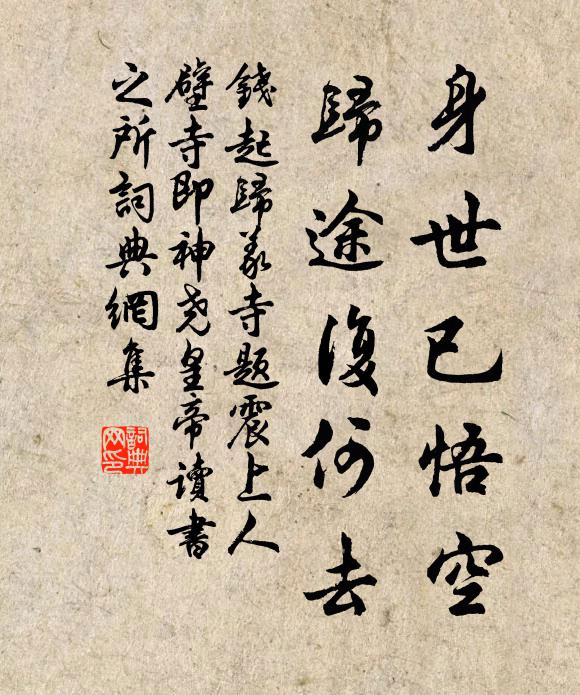 身世已悟空
歸途復何去
錢起歸義寺題震上人
壁寺即神堯皇帝讀書
之所詞典網集
詞典網印